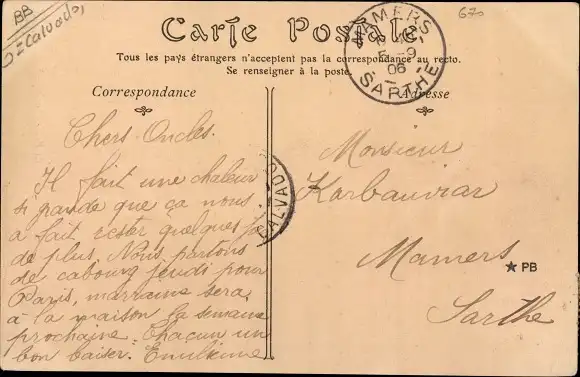 BB
Calvados
670
Carte Postale
Tous les pays étrangers n'acceptent pas la correspondance au recto.
Se renseigner à la poste.
MAMERS
5 -9
06
SARTHE
Correspondance
Adresse
Chers Oncles.
Il fait une chaleur
si grande que ça nous
a fait rester quelques
de plus. Nous partons
de cabourg jeudi pour
Paris, marraine sera
à la maison la semaine
prochaine. Chacun un
bon baiser.
CALVADOS
Monsieur
Karbauviar
Mamers
Sarthe
★ PB